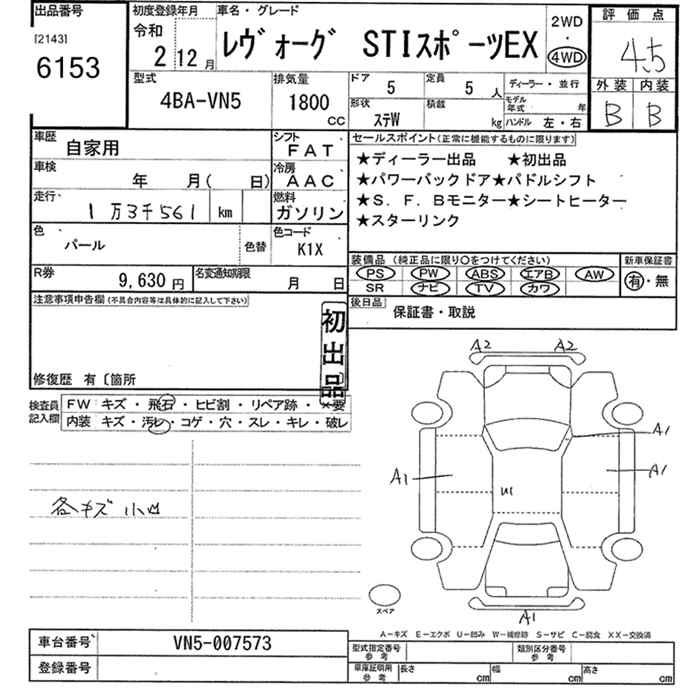 出品番号
[2143]
6153
初度登録年月
令和
2 12 月
車名・グレード
レヴォーグ STIスポーツEX
2WD
・
4WD
評価点
4.5
外装 内装
B B
型式
4BA-VN5
排気量
1800
CC
ドア
5
定員
5 人
ディーラー・並行
形状
ステW
積載
kg
モデル年式 年
ハンドル 左・右
車歴
自家用
シフト
FAT
車検
年 月( 日)
冷房
AAC
走行
1万3千561 km
燃料
ガソリン
色
パール
色替
色コード
K1X
R券
9,630 円
名変通知期限
月 日
セールスポイント(正常に機能するものに限ります)
★ディーラー出品 ★初出品
★パワーバックドア★パドルシフト
★S.F.Bモニター★シートヒーター
★スターリンク
装備品(純正品に限り○をつけてください)
新車保証書
PS PW ABS エアB AW
SR ナビ TV カワ
有・無
後日品
保証書・取説
注意事項申告欄(不具合内容等は具体的に記入して下さい)
初出品
修復歴 有〔箇所
検査員記入欄
FW キズ・飛石・ヒビ割・リペア跡・×要
内装 キズ・汚レ・コゲ・穴・スレ・キレ・破レ
各キズ小凹
A2 A2
A1
A1
A1
U1
A1
スペア
A−キズ E−エクボ U−凹み W−補修跡 S−サビ C−腐食 XX−交換済
車台番号
VN5-007573
登録番号
型式指定番号
参考
類別区分番号
参考
車庫証明用
参考
長さ cm
幅 cm
高さ cm